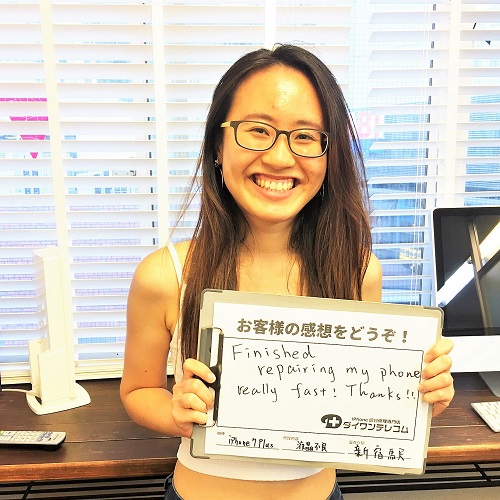 お客様の感想をどうぞ！
Finished
repairing my phone
really fast! Thanks!!
ダイワンテレコム
iPhone 7 Plus
液晶不良
新宿駅